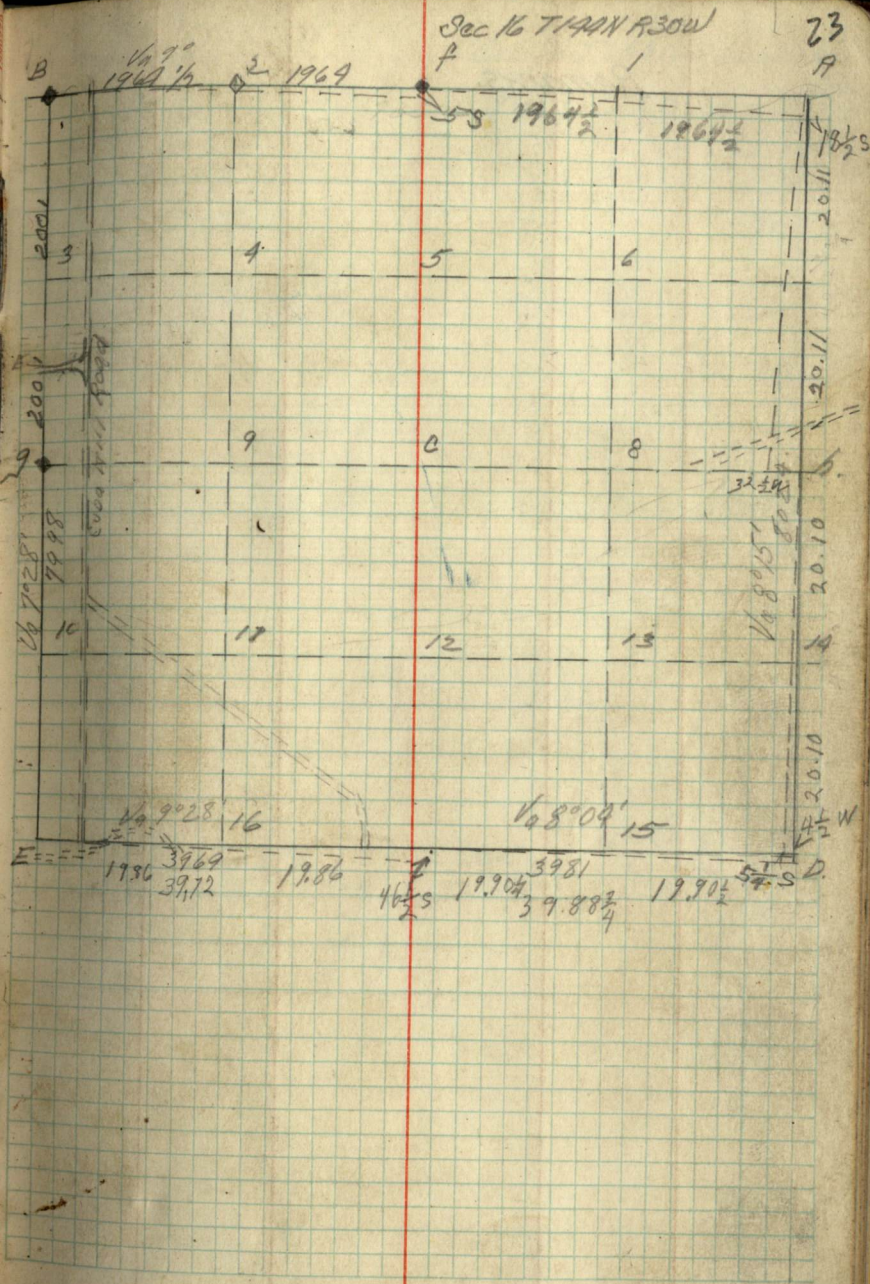 Sec 16 T144N R30W
23
B
Va 9°
1964 1/2
2
1964
f
1
A
5 S
1964 1/2
1964 1/2
18 1/2 S
2001
20.11
3
4
5
6
2001
Road
20.11
g
9
C
8
h.
32 1/2 W
Va 7°28'
7998
Va 8°15'
20.10
10
11
12
13
14
20.10
Va 9°28'
16
Va 8°09'
15
4 1/2 W
E
1986
3969
39.72
19.86
46 1/2 S
19.90 1/4
3981
39.88 3/4
19.90 1/2
5 1/4 S
D.